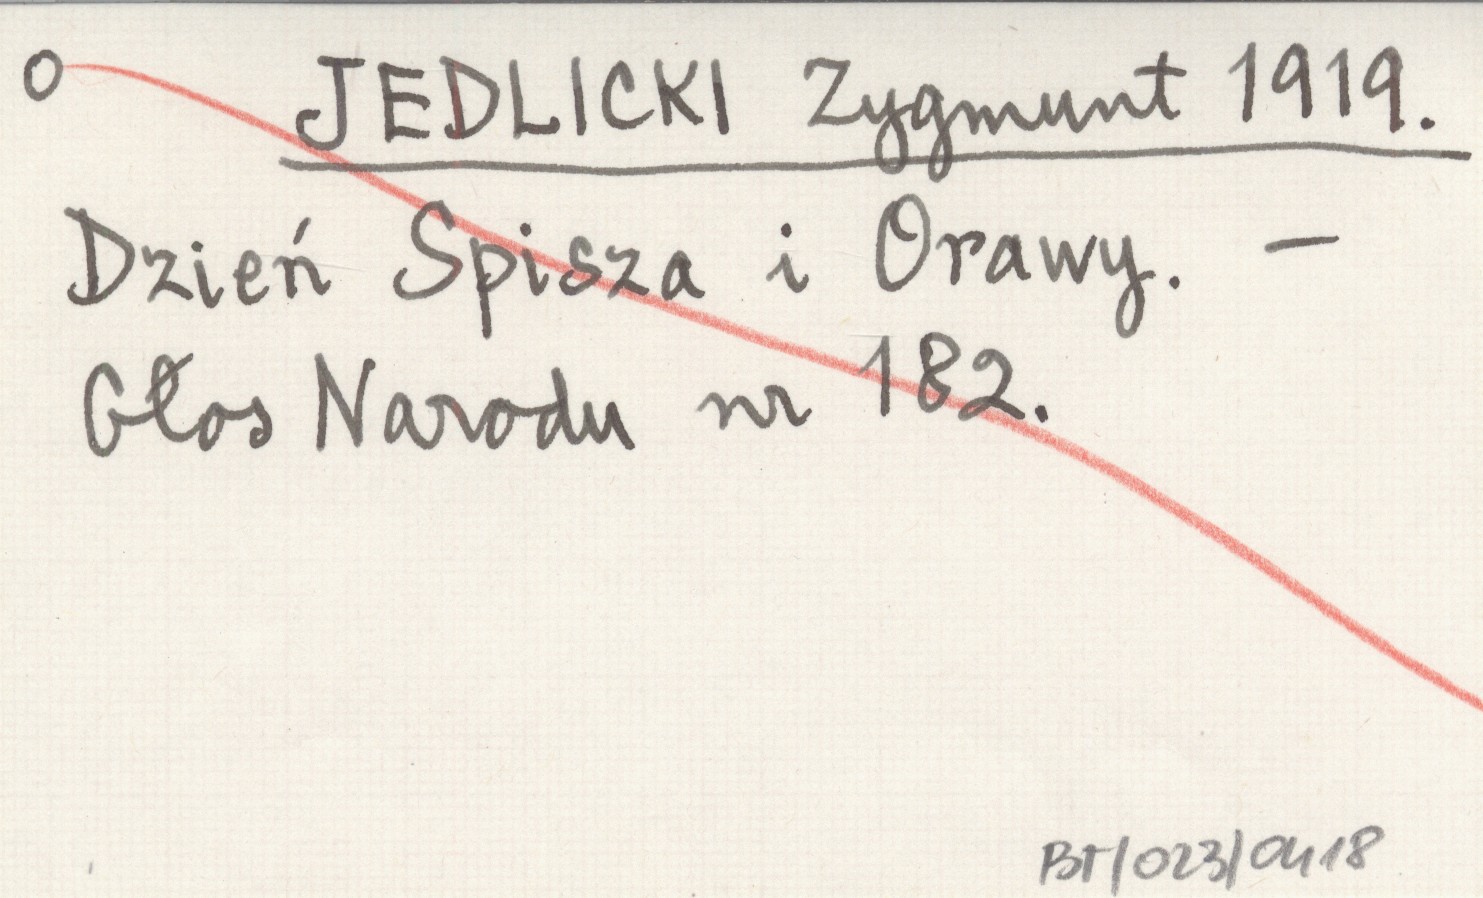 O JEDLICKI Zygmunt 1919.
Dzień Spisza i Orawy. —
Głos Narodu nr 182.
BT/023/0418